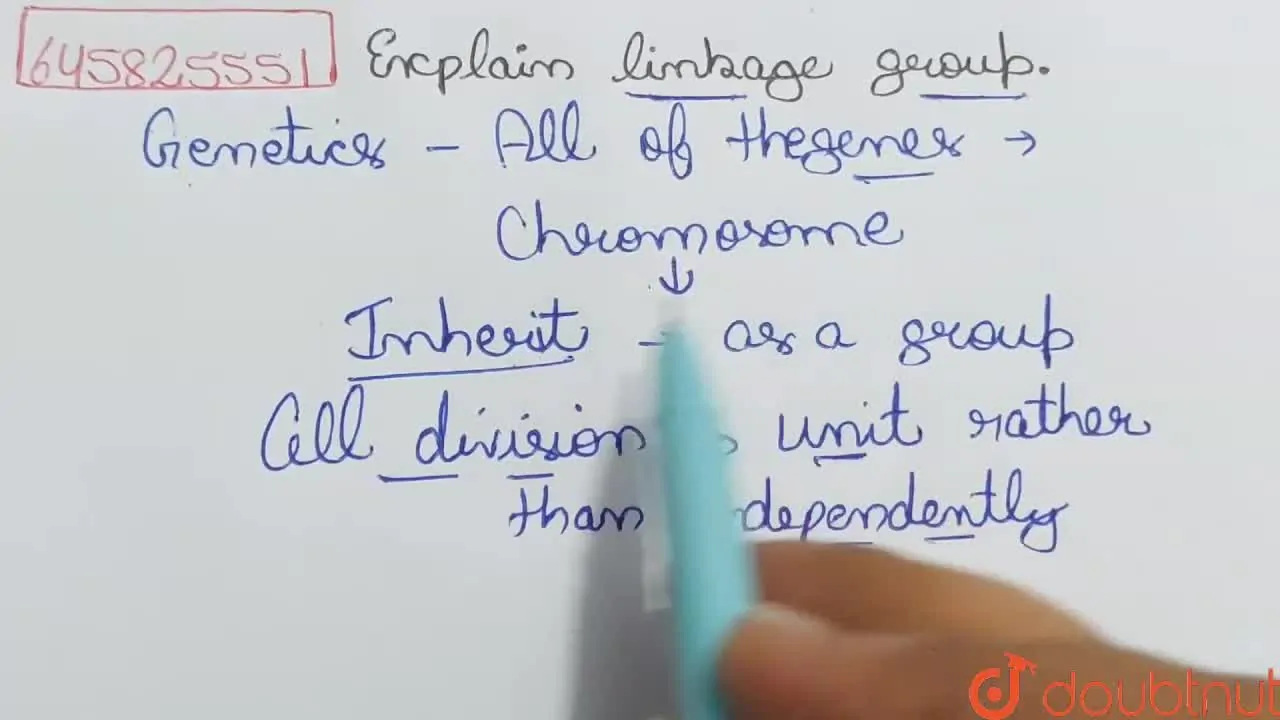 645825551 Explain linkage group.
Genetics - All of thegenes →
Chromosome
↓
Inherit - as a group
Cell division unit rather
than
doubtnut